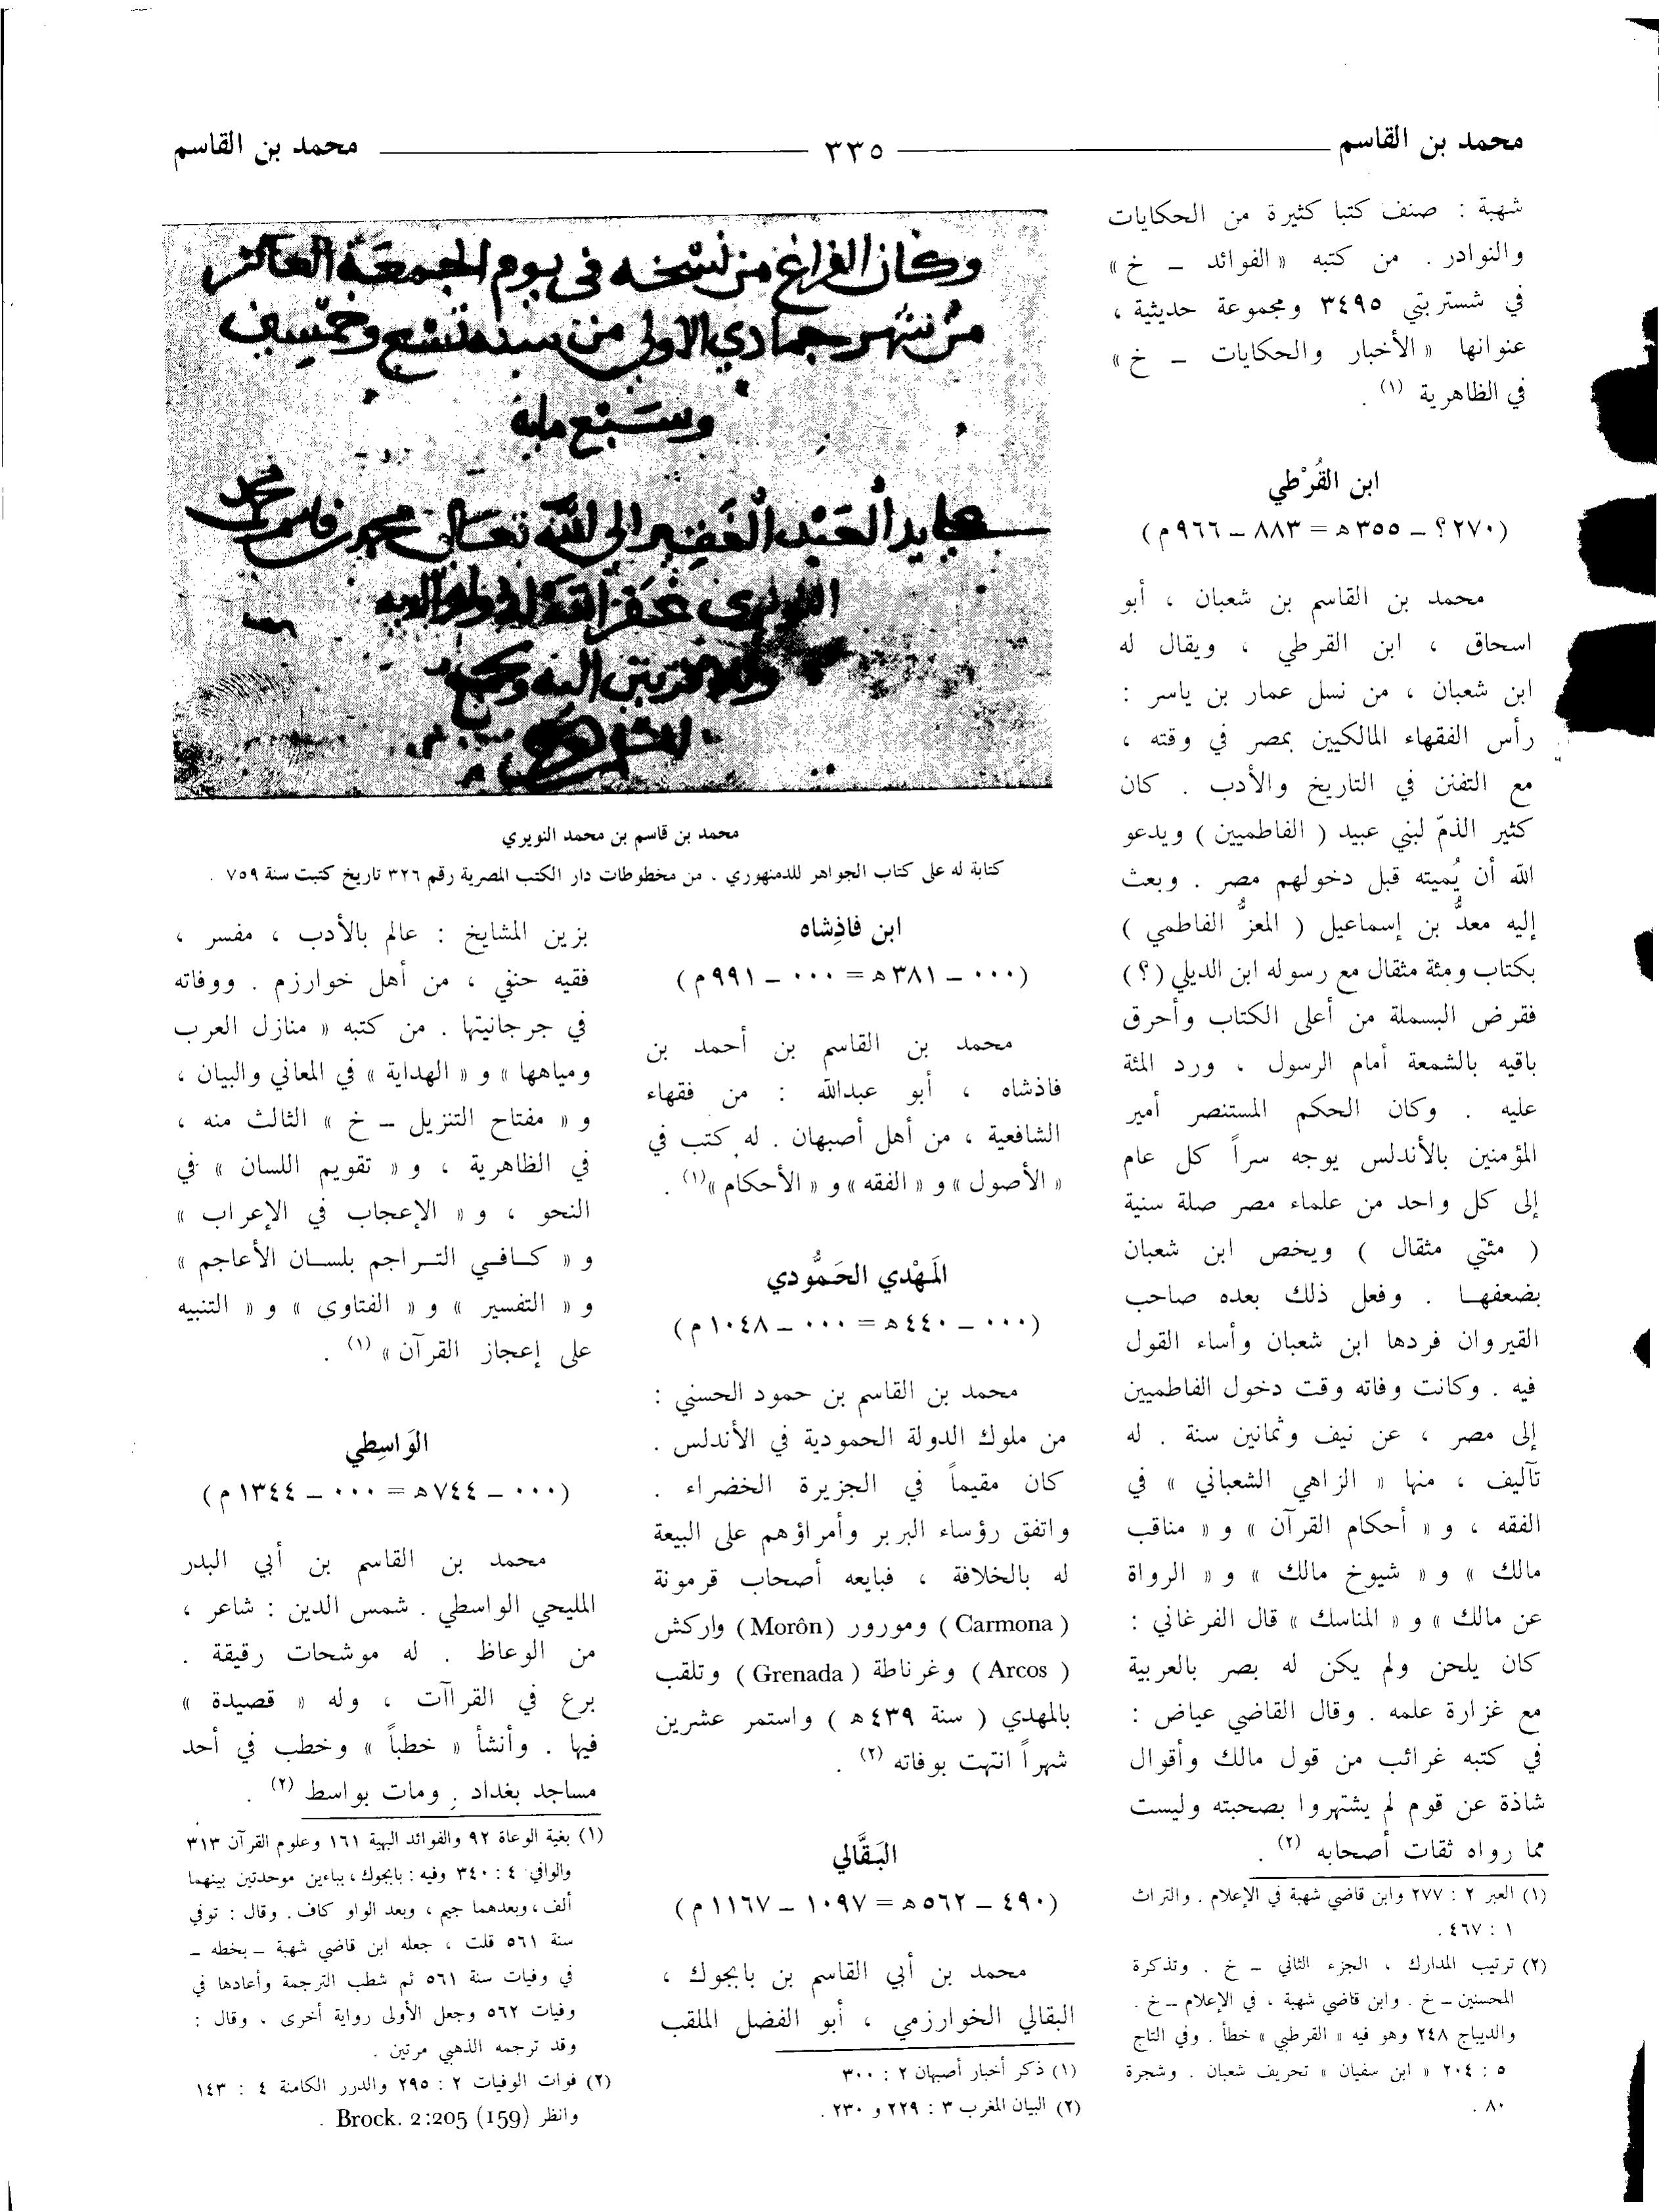 محمد بن القاسم
٣٣٥
محمد بن القاسم
شهبة : صنف كتبا كثيرة من الحكايات
والنوادر . من كتبه « الفوائد ــ خ »
في شستربتي ٣٤٩٥ ومجموعة حديثية ،
عنوانها « الأخبار والحكايات ــ خ »
في الظاهرية (١) .
ابن القُرْطي
(٢٧٠؟ ــ ٣٥٥ ه = ٨٨٣ ــ ٩٦٦ م)
محمد بن القاسم بن شعبان ، أبو
اسحاق ، ابن القرطي ، ويقال له
ابن شعبان ، من نسل عمار بن ياسر :
رأس الفقهاء المالكيين بمصر في وقته ،
مع التفنن في التاريخ والأدب . كان
كثير الذمّ لبني عبيد ( الفاطميين ) ويدعو
الله أن يُميته قبل دخولهم مصر . وبعث
إليه معدُّ بن إسماعيل ( المعزُّ الفاطمي )
بكتاب ومئة مثقال مع رسوله ابن الديلي (؟)
فقرض البسملة من أعلى الكتاب وأحرق
باقيه بالشمعة أمام الرسول ، ورد المئة
عليه . وكان الحكم المستنصر أمير
المؤمنين بالأندلس يوجه سراً كل عام
إلى كل واحد من علماء مصر صلة سنية
( مئتي مثقال ) ويخص ابن شعبان
بضعفهـا . وفعل ذلك بعده صاحب
القيروان فردها ابن شعبان وأساء القول
فيه . وكانت وفاته وقت دخول الفاطميين
إلى مصر ، عن نيف وثمانين سنة . له
تآليف ، منها « الزاهي الشعباني » في
الفقه ، و « أحكام القرآن » و « مناقب
مالك » و « شيوخ مالك » و « الرواة
عن مالك » و « المناسك » قال الفرغاني :
كان يلحن ولم يكن له بصر بالعربية
مع غزارة علمه . وقال القاضي عياض :
في كتبه غرائب من قول مالك وأقوال
شاذة عن قوم لم يشتهروا بصحبته وليست
مما رواه ثقات أصحابه (٢) .
(١) العبر ٢ : ٢٧٧ وابن قاضي شهبة في الإعلام . والتراث
١ : ٤٦٧ .
(٢) ترتيب المدارك ، الجزء الثاني ــ خ . وتذكرة
المحسنين ــ خ . وابن قاضي شهبة ، في الإعلام ــ خ .
والديباج ٢٤٨ وهو فيه « القرطبي » خطأ . وفي التاج
٥ : ٢٠٤ « ابن سفيان » تحريف شعبان . وشجرة
٨٠ .
وكان الفراغ من نسخه في يوم الجمعة العاشر
من شهر جمادي الاولى من سنه تسع وخمسين
وسبع مايه
على يد العبد الفقير الى الله تعالى محمد بن قاسم بن محمد
النويري غفر الله له ولوالديه
محمد بن قاسم بن محمد النويري
كتابة له على كتاب الجواهر للدمنهوري . من مخطوطات دار الكتب المصرية رقم ٣٢٦ تاريخ كتبت سنة ٧٥٩ .
ابن فاذِشاه
(٠٠٠ ــ ٣٨١ ه = ٠٠٠ ــ ٩٩١ م)
محمد بن القاسم بن أحمد بن
فاذشاه ، أبو عبدالله : من فقهاء
الشافعية ، من أهل أصبهان . له كتب في
« الأصول » و « الفقه » و « الأحكام »(١) .
المَهْدي الحَمُّودي
(٠٠٠ ــ ٤٤٠ ه = ٠٠٠ ــ ١٠٤٨ م)
محمد بن القاسم بن حمود الحسني :
من ملوك الدولة الحمودية في الأندلس .
كان مقيماً في الجزيرة الخضراء .
واتفق رؤساء البربر وأمراؤهم على البيعة
له بالخلافة ، فبايعه أصحاب قرمونة
( Carmona ) ومورور (Morôn ) واركش
( Arcos ) وغرناطة ( Grenada ) وتلقب
بالمهدي ( سنة ٤٣٩ ه ) واستمر عشرين
شهراً انتهت بوفاته (٢) .
البَقَّالي
(٤٩٠ ــ ٥٦٢ ه = ١٠٩٧ ــ ١١٦٧ م)
محمد بن أبي القاسم بن بابجوك ،
البقالي الخوارزمي ، أبو الفضل الملقب
(١) ذكر أخبار أصبهان ٢ : ٣٠٠
(٢) البيان المغرب ٣ : ٢٢٩ و ٢٣٠ .
بزين المشايخ : عالم بالأدب ، مفسر ،
فقيه حنفي ، من أهل خوارزم . ووفاته
في جرجانيتها . من كتبه « منازل العرب
ومياهها » و « الهداية » في المعاني والبيان ،
و « مفتاح التنزيل ــ خ » الثالث منه ،
في الظاهرية ، و « تقويم اللسان » في
النحو ، و « الإعجاب في الإعراب »
و « كـافـي التـراجم بلسـان الأعاجم »
و « التفسير » و « الفتاوى » و « التنبيه
على إعجاز القرآن » (١) .
الوَاسِطي
(٠٠٠ ــ ٧٤٤ ه = ٠٠٠ ــ ١٣٤٤ م)
محمد بن القاسم بن أبي البدر
المليحي الواسطي . شمس الدين : شاعر ،
من الوعاظ . له موشحات رقيقة .
برع في القراآت ، وله « قصيدة »
فيها . وأنشأ « خطباً » وخطب في أحد
مساجد بغداد . ومات بواسط (٢) .
(١) بغية الوعاة ٩٢ والفوائد البهية ١٦١ وعلوم القرآن ٣١٣
والوافي ٤ : ٣٤٠ وفيه : بابجوك ، بباءين موحدتين بينهما
ألف ، وبعدهما جيم ، وبعد الواو كاف . وقال : توفي
سنة ٥٦١ قلت ، جعله ابن قاضي شهبة ــ بخطه ــ
في وفيات سنة ٥٦١ ثم شطب الترجمة وأعادها في
وفيات ٥٦٢ وجعل الأولى رواية أخرى . وقال :
وقد ترجمه الذهبي مرتين .
(٢) فوات الوفيات ٢ : ٢٩٥ والدرر الكامنة ٤ : ١٤٣
وانظر Brock. 2:205 (159) .